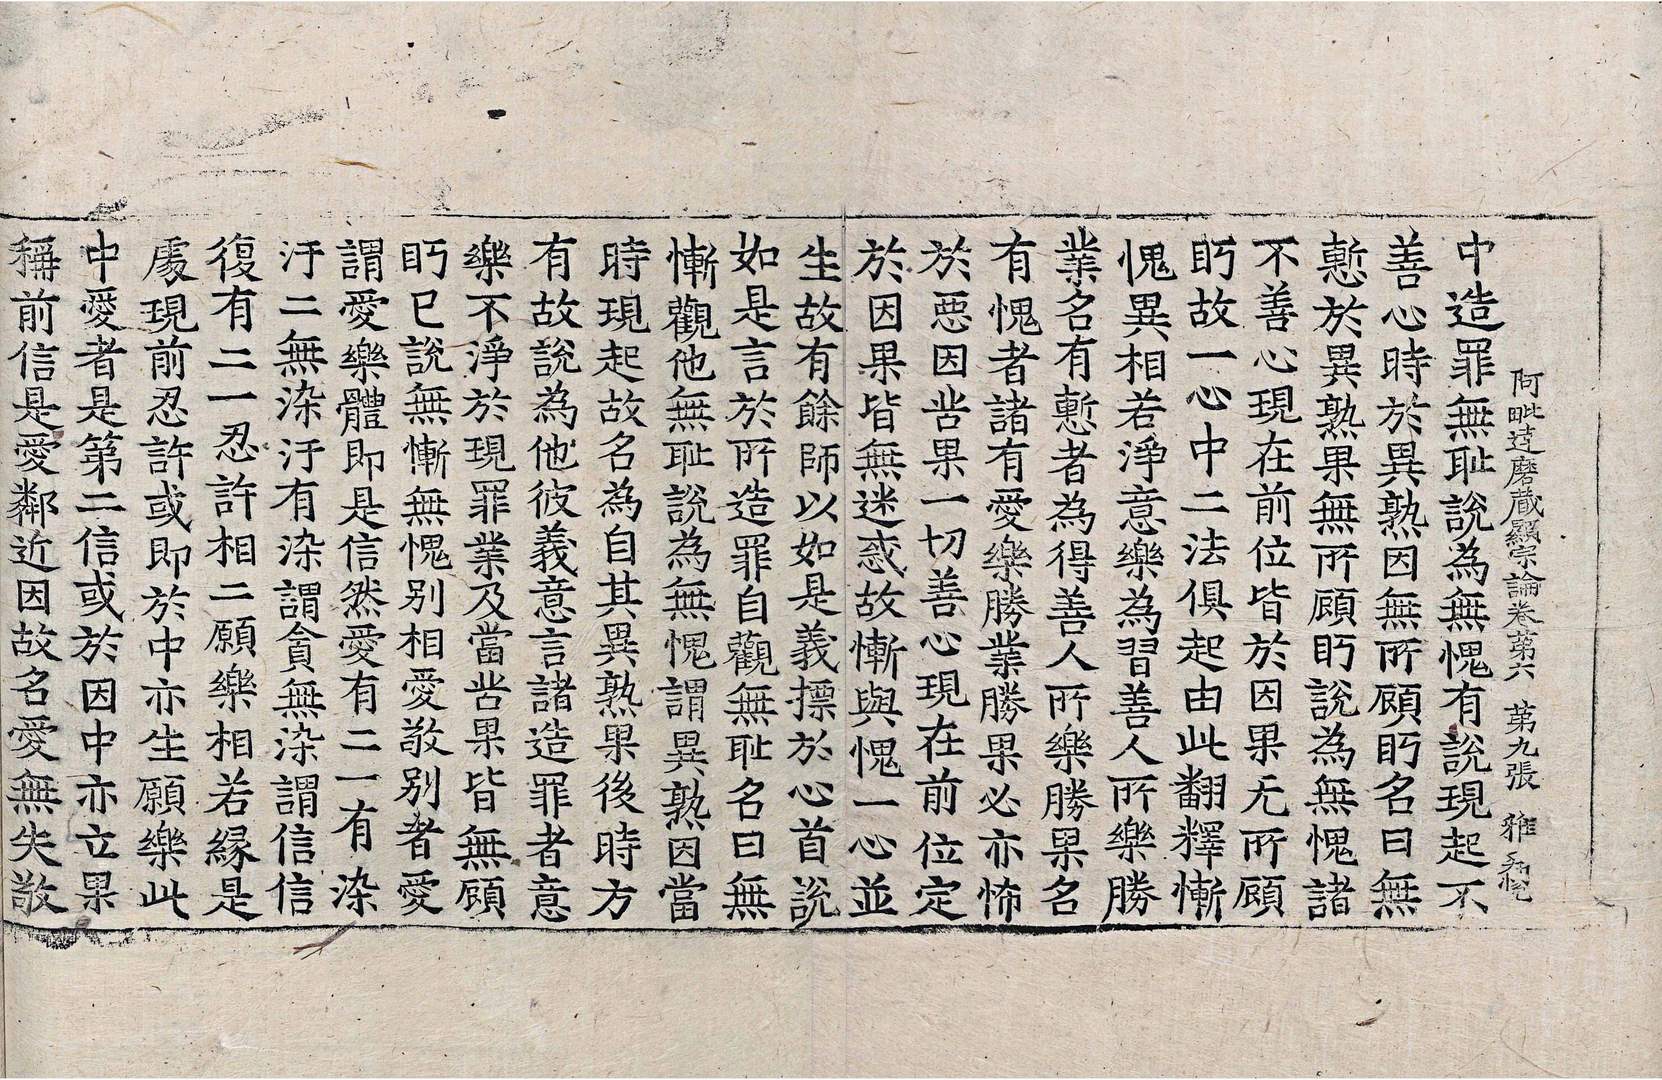 阿毗達磨蔵顯宗論卷第六　第九張　雅
中造罪無耻說為無愧有說現起不
善心時於異熟因無所顧眄名曰無
慙於異熟果無所顧眄說為無愧諸
不善心現在前位皆於因果无所顧
眄故一心中二法俱起由此翻釋慚
愧異相若淨意樂為習善人所樂勝
業名有慙者為得善人所樂勝果名
有愧者諸有愛樂勝業勝果必亦怖
於惡因苦果一切善心現在前位定
於因果皆無迷惑故慚與愧一心並
生故有餘師以如是義摽於心首說
如是言於所造罪自觀無耻名曰無
慚觀他無耻說為無愧謂異熟因當
時現起故名為自其異熟果後時方
有故說為他彼義意言諸造罪者意
樂不淨於現罪業及當苦果皆無顧
眄已說無慚無愧別相愛敬別者愛
謂愛樂體即是信然愛有二一有染
汙二無染汙有染謂貪無染謂信信
復有二一忍許相二願樂相若緣是
處現前忍許或即於中亦生願樂此
中愛者是第二信或於因中亦立果
稱前信是愛鄰近因故名愛無失敬